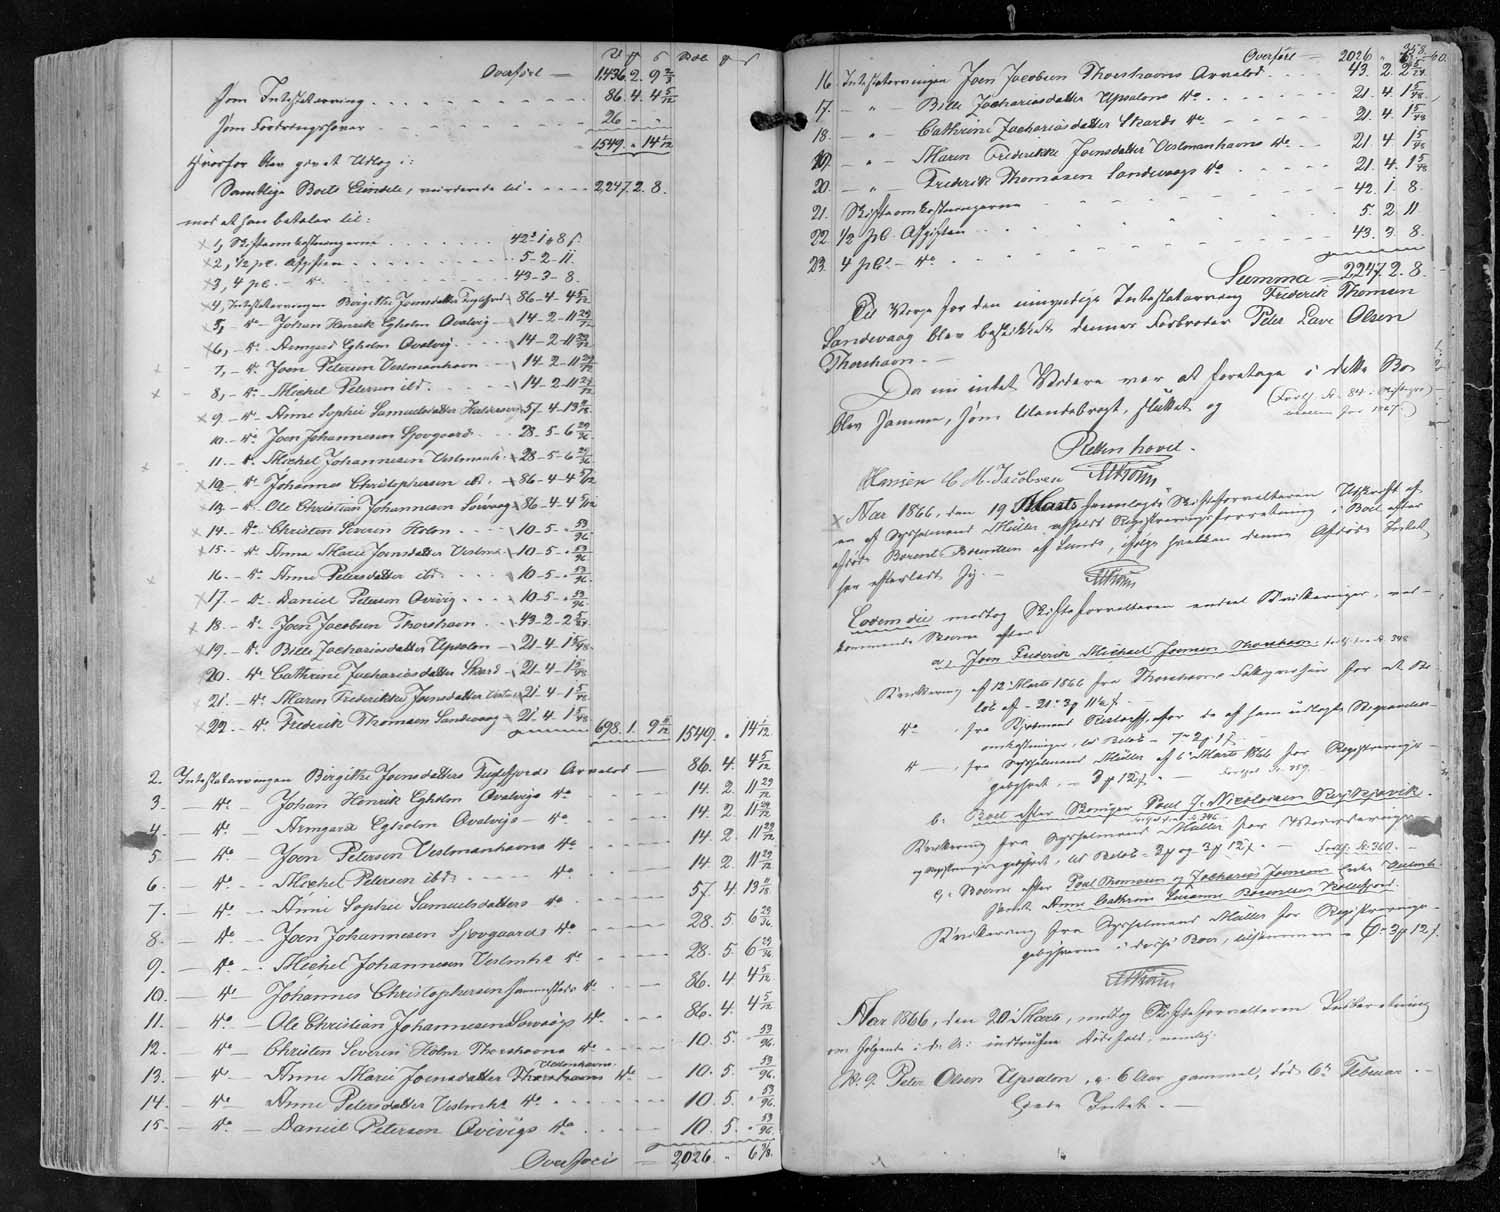 Overført — 1436. 2. 9 2/3
som Intestatarving . . . 86. 4. 4 5/12
som Fordringshaver - - - 26 - -
1549. " 14 1/12
hvorfor blev gjort Udlæg i:
Samtlige Boets Eiendele, vurderede til . . . 2247. 2. 8.
mod at han betaler til:
1, Skifteomkostningerne . . . 42. 1. 8
2, 1/2 pC. Afgiften . . . 5 - 2 - 11
3, 4 pC. - do . . . 43 - 3 - 8.
4, Intestatarvingen Birgithe Joensdatter Fuglefjord 86 - 4 - 4 5/12
5, - do Johan Henrik Egholm Qvalvig - 14 - 2 - 11 29/72
6, - do Armgard Egholm Qvalvig . . 14 - 2 - 11 29/72
7, - do Joen Petersen Vestmanhavn . . 14 - 2 - 11 29/72
8, - do Michel Petersen ibd. . . . 14 - 2 - 11 29/72
9 - do Anne Sophie Samuelsdatter 57 - 4 - 13 11/18
10. - do Joen Johannesen Sjovgaard . . 28 - 5 - 6 29/36
11. - do Michel Johannesen Vestmanh. 28 - 5 - 6 29/36
12 - do Johannes Christophersen ibd. 86 - 4 - 4 5/12
13. - do Ole Christian Johannesen Sørvaag 86 - 4 - 4 5/12
14. - do Christen Severin Holm . . . 10 - 5 - 53/96
15. - do Anna Marie Joensdatter Vestmh. 10 - 5 - " 53/96
16. - do Anne Petersdatter ibd. . . . 10 - 5 - " 53/96
17. - do Daniel Petersen Qvivig . . . 10 - 5 - " 53/96
18. - do Joen Jacobsen Thorshavn . . 43 - 2 - 2 5/24
19. - do Bille Zachariasdatter Upsalen - 21 - 4 - 1 5/48
20. do Cathrine Zachariasdatter Skaard - 21 - 4 - 1 5/48
21. do Maren Frederikke Joensdatter 21 - 4 - 1 5/48
22. - do Frederik Thomasen Sandevaag - 21. 4. 1 5/48 698. 1. 9 5/12 1549. " 14 1/12
2. Intestatarvingen Birgithe Joensdatters Fuglefjords Arvelod — 86. 4. 4 5/12
3. — do - Johan Henrik Egholm Qvalvigs do - - - 14. 2. 11 29/72
4. — do - Armgard Egholm Qvalvigs - do - - - 14. 2 11 29/72
5. — do - Joen Petersen Vestmanhavns do - - - 14. 2 11 29/72
6. — do - Michel Petersen ibds - - - do - - - 14. 2. 11 29/72
7. — do - Anne Sophie Samuelsdatters do - - - 57. 4. 13 11/18
8. — do - Joen Johannesen Sjovgaards do - - - 28. 5. 6 29/36
9. — do - Michel Johannesen Vestmhs do - - - 28. 5. 6 29/36
10. — do - Johannes Christophersen sammesteds do - - 86. 4. 4 5/12
11. — do - Ole Christian Johannesen Sørvaags do - - - 86. 4. 4 5/12
12. — do - Christen Severin Holm Thorshavns do - - - 10. 5. " 53/96
13. — do - Anne Marie Joensdatter Thorshavns Vestmanhavns do - - 10. 5. " 53/96
14. — do - Anne Petersdatter Vestmhs do . . . 10. 5. " 53/96
15. — do - Daniel Petersen Qvivigs do . . . 10. 5. " 53/96
Overføres — 2,026. " 6 7/8
358.
Overført — 2026
16 Intestatarvingen Joen Jacobsen Thorshavns Arvelod . . 43. 2. 2 5/24
17. — " — Bille Zachariasdatter Upsalens do . . . 21. 4. 1 5/48
18. — " — Cathrine Zachariasdatter Skards do . . . 21. 4. 1 5/48
19. — " — Maren Frederikke Joensdatter Vestmanhavns do . . 21. 4 1 5/48
20. — " — Frederik Thomasen Sandevaags do . . . 21. 4. 1 5/48
21. Skifteomkostningerne . . . 42. 1. 8
22. 1/2 pC. Afgiften . . . 5. 2. 11
23. 4 pCt — do . . . 43. 3. 8.
Summa = 2247. 2. 8.
Til Værge for den umyndige Intestatarving Frederik Thomsen
Sandevaag blev beskikket dennes Farbroder Peter Lave Olsen
Thorshavn. —
Da nu intet Videre var at foretage i dette Bo
blev samme, som tilendebragt, sluttet og (Fortf. № 84
Retten hævet.
Hansen C M. Jacobsen
Aar 1866, den 19 Marts fremlagde Skifteforvalteren Udskrift af
en af Sysselmand Müller afholdt Registreringsforretning i Boet efter
afdøde af Sund, ifølge hvilken denne Afdøde Intet
har efterladt sig. —
Eodem die modtog Skifteforvalteren endeel Qvitteringer, ved-
kommende Boerne efter:
a, Joen Frederik Michael Joensen Thorshavn. № 348
Qvittering af 12 Marts 1866 fra Thorshavns for et Be-
løb af - 21 -
do, fra for de af ham udlagte Begravelses-
omkostninger, til Beløb -
do —, fra Sysselmand Müller af 6 Marts 1866 for Registrerings-
gebyhret, - 3 12 . — Fortsat № 359.
b, Boet efter Poul J. Nicolaisen
Qvittering fra Sysselmand Müller for Vurderings-
og Registreringsgebyhret, til Beløb = og 3 12 . — Fortf. № 360.
c, Boerne efter Poul Thomasen og Zacharias Joensen
samt Anne Cathrine
Qvittering fra Sysselmand Müller for Registrerings-
gebyhrerne i disse Boer, tilsammen =
Aar 1866, den 20 Marts, modtog Skifteforvalteren Indberetning
om følgende i d. A. indtrufne Dødsfald, nemlig:
№ 9. Peter Olsen Upsalen, 6 Aar gammel, død 6te Februar. —
Intet. —